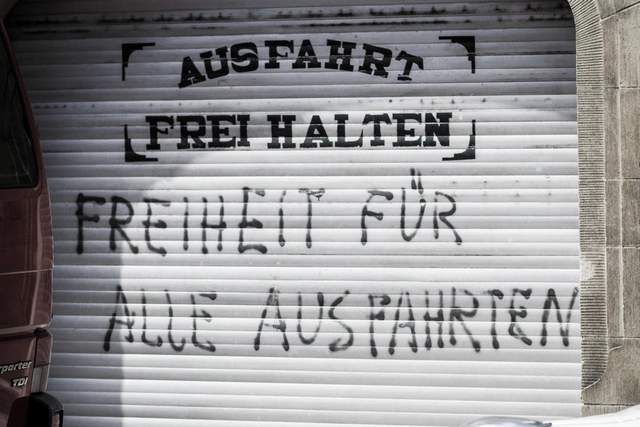 AUSFAHRT
FREI HALTEN
FREIHEIT FÜR
ALLE AUSFAHRTEN
rporter
TDI